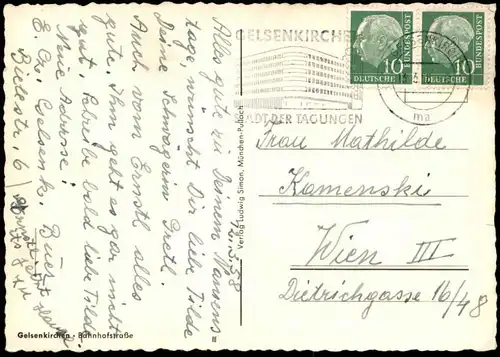 12.3.58
Alles gute zu Deinem Namens=
tage wünscht Dir liebe Tilde
Deine Schwägerin Gretl.
Auch vom Ernstl alles
gute. Ihm geht es gar nicht
gut. Schreibe bald liebe Tilde.
Neue Adresse!
E. W. Gelsenk. Buer
Bülestr. 6
Verlag Ludwig Simon, München-Pullach
Gelsenkirchen • Bahnhofstraße
GELSENKIRCHEN
STADT DER TAGUNGEN
10 DEUTSCHE BUNDESPOST
10 DEUTSCHE BUNDESPOST
ma
Frau Mathilde
Kamenski
Wien III
Dietrichgasse 16/48